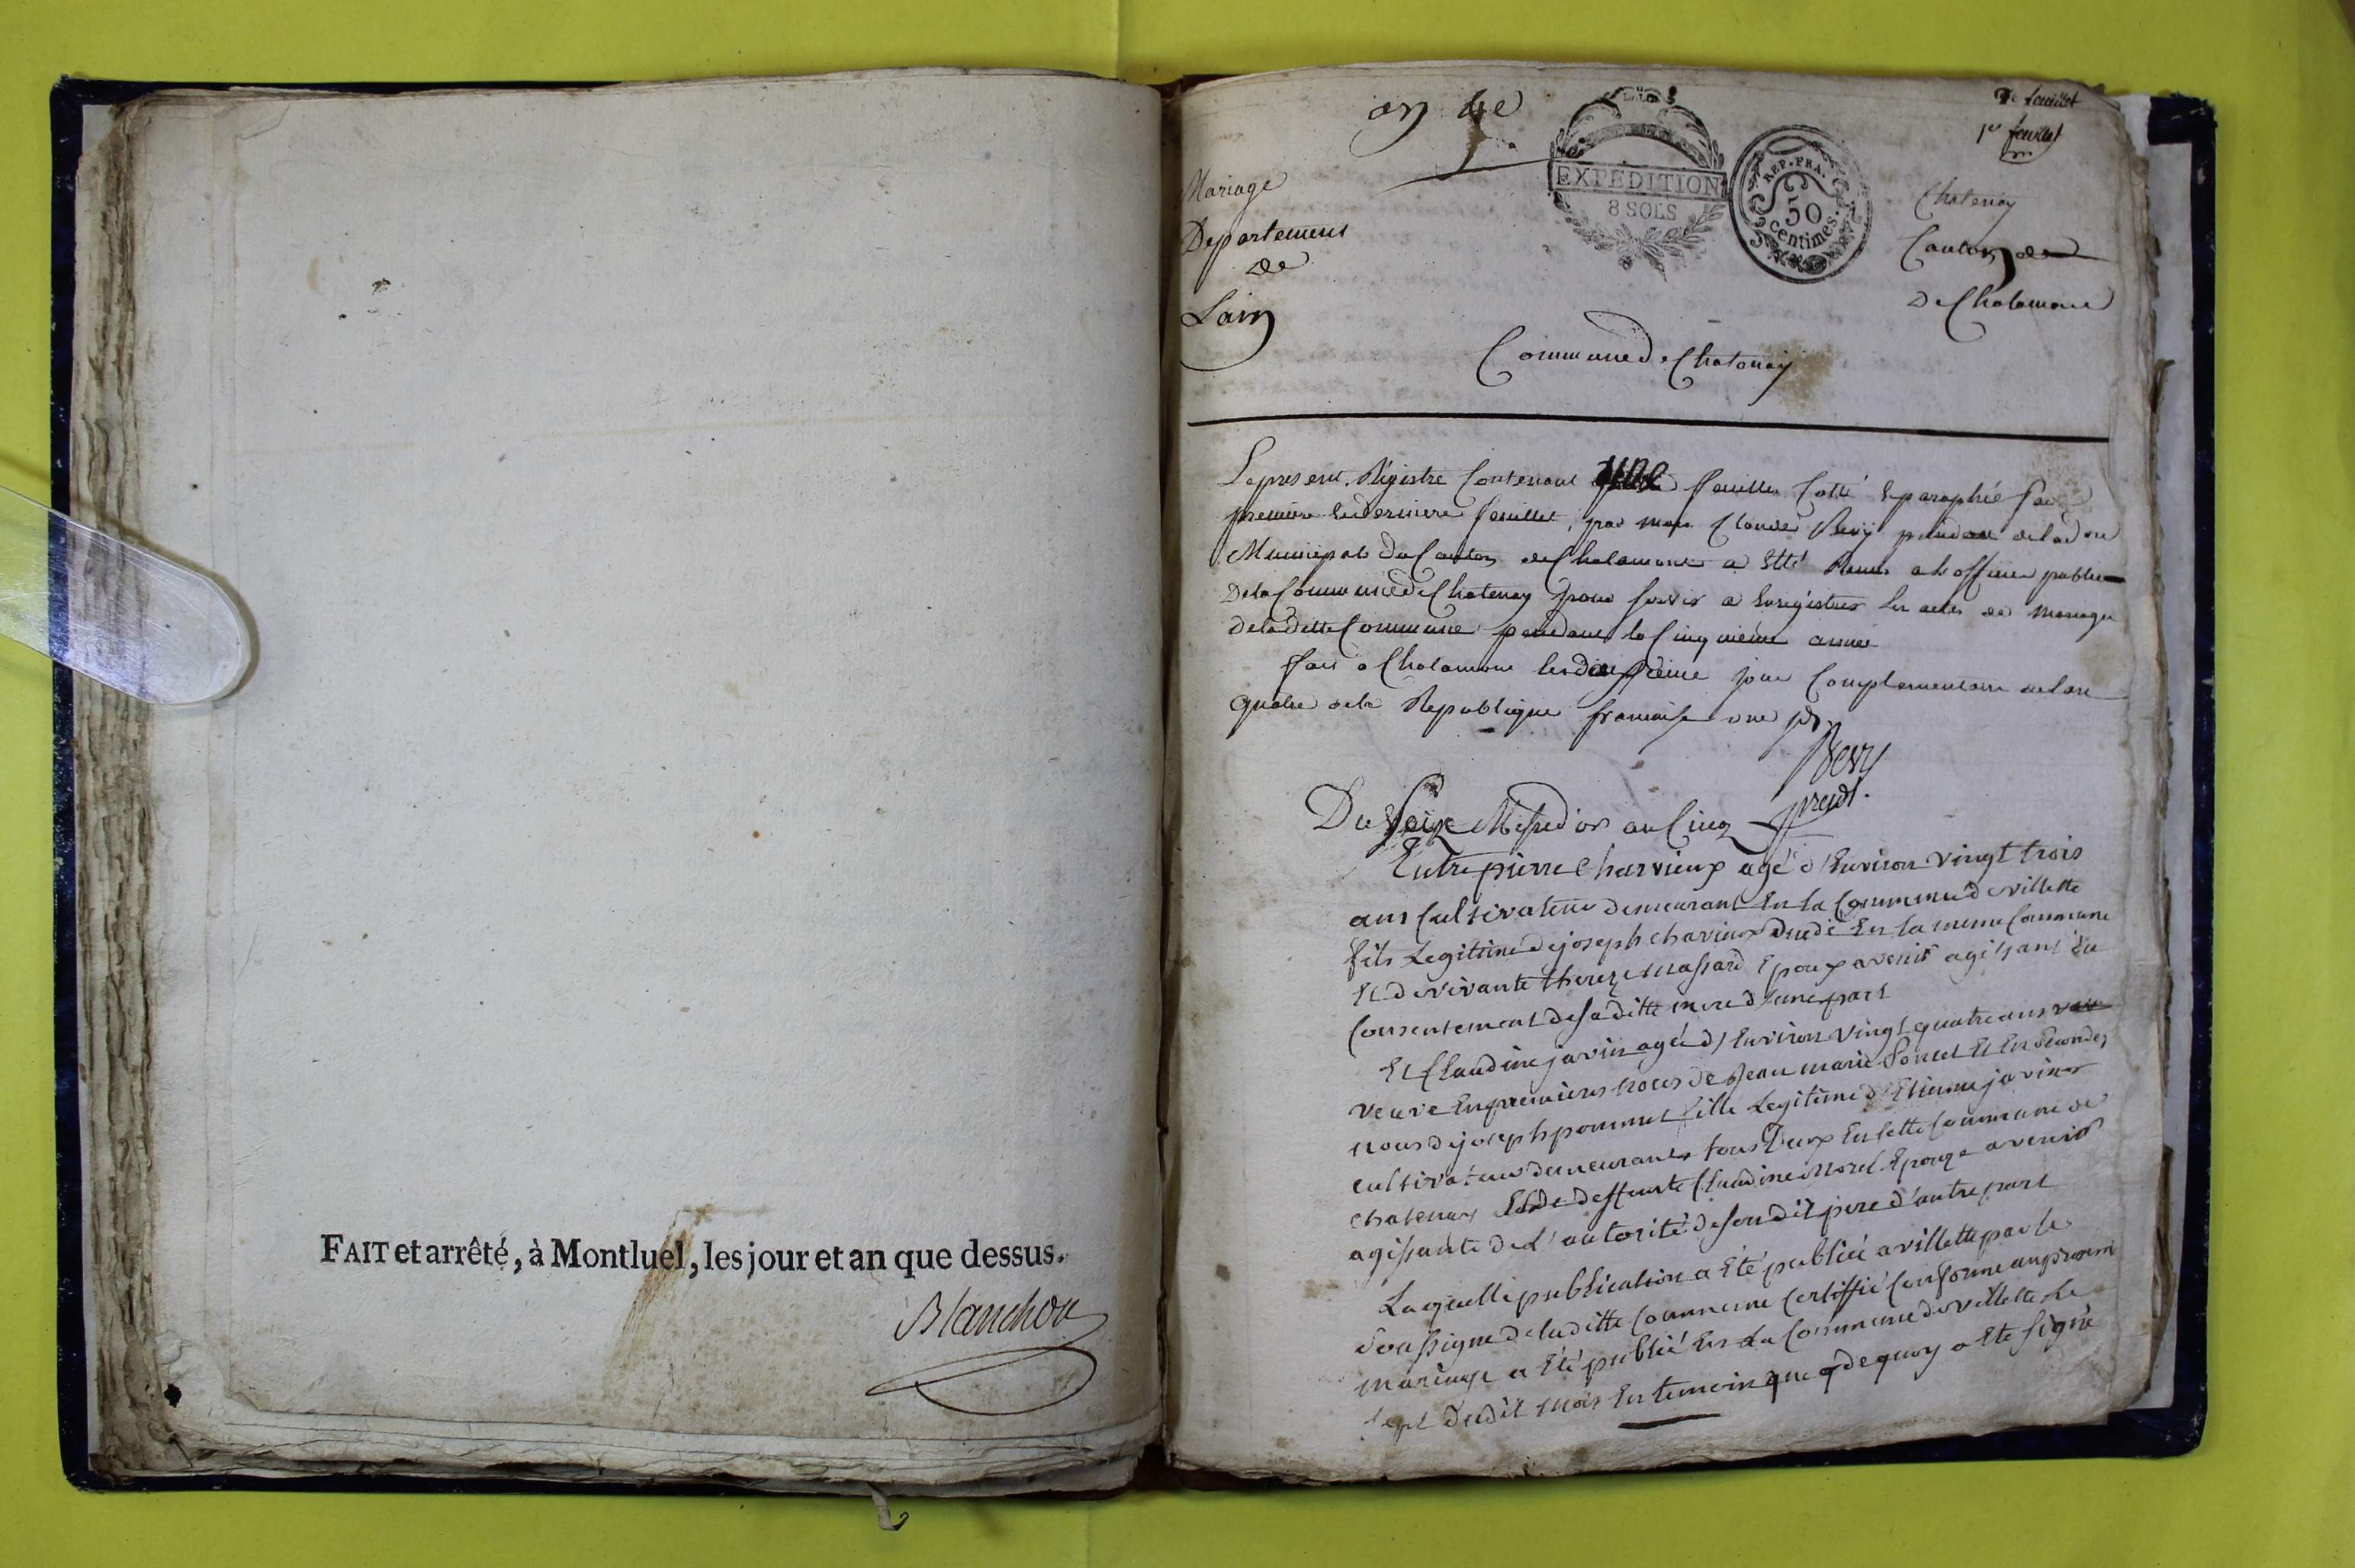 FAIT et arrêté, à Montluel, les jour et an que dessus.
Blanchon
an 4e
7e feuillet
1er feuillet
EXPÉDITION
8 SOLS
REP. FRA.
50
centimes.
Mariage
Departement
de
Lain
Chatenay
Canton de
De Chalamont
Commune de Chatenay
Le present Régistre Contenant une feuille Cotté & paraphée par
premiere & derniere feuillet, par moy Claude Bevy president de ladon
Municipale du Canton de Chalamont a Etté Remis a lofficier public
De la Commune de Chatenay pour servir a Enregistrer les actes de Mariage
de la ditte Commune pendant la Cinquieme année
fait a Chalamont le jour Complementaire de lan
quatre de la Republique francaise une &
Bevy
presdt.
Du Seize Messid'or an Cinq
Entre pierre Charvieux agé d'Environ vingt trois
ans Cultivateur demeurant En la Commune de villette
fils Legitime de joseph charvieux En la meme Commune
Et de vivante thereze Massard Epoux avenir agissant du
Consentement de sa ditte mere d'une part
Et Claudine javin agée d'Environ vingt quatre ans
veuve En premieres noces de Jean marie Poncet Et En Secondes
noces de joseph pommet fille Legitime d'Etienne javin
cultivateur demeurants tous Deux En cette Commune de
chatenay Et de deffunte Claudine Morel Epouze avenir
agissante de L'autorité de son dit pere d'autre part
Laquelle publication a Eté publiée a villette par le
Soussigné de la ditte Commune Certiffié Conforme au present
mariage a Eté publié En La Commune de villette Le
sept du dit mois En temoin que de quoy a Eté signé